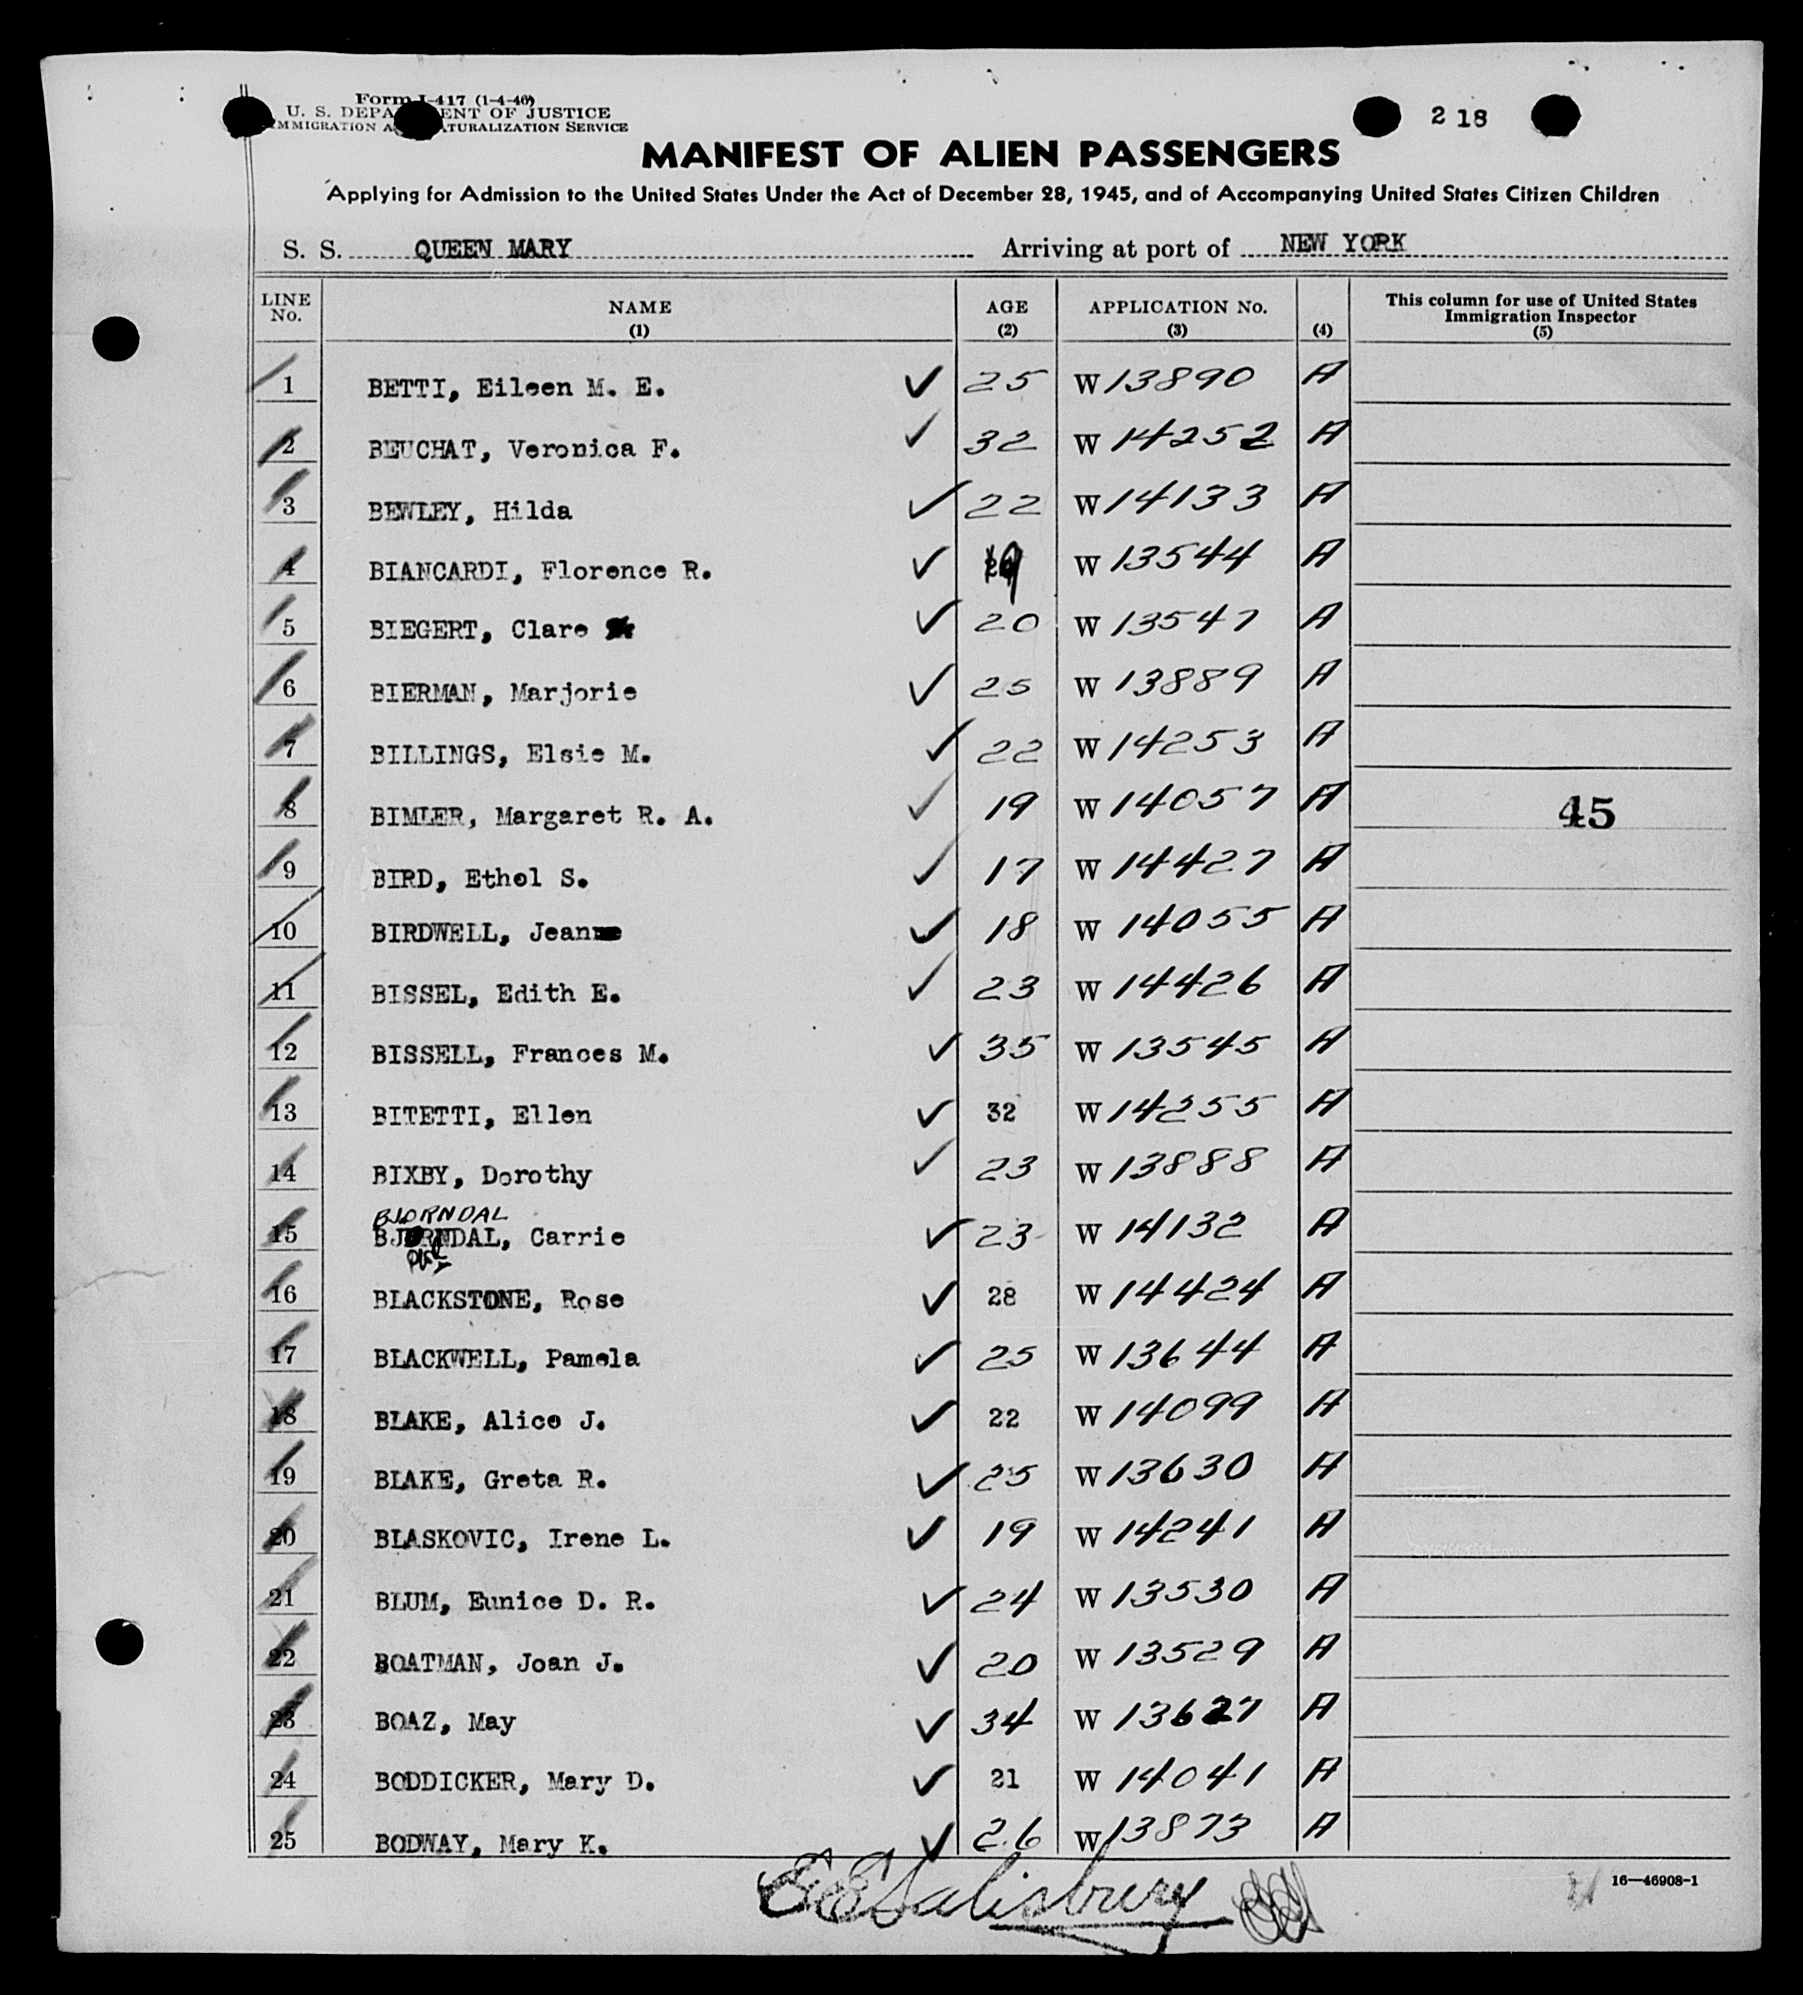 Form I-417 (1-4-46)
U. S. DEPARTMENT OF JUSTICE
IMMIGRATION AND NATURALIZATION SERVICE
2 18
MANIFEST OF ALIEN PASSENGERS
Applying for Admission to the United States Under the Act of December 28, 1945, and of Accompanying United States Citizen Children
S. S. QUEEN MARY Arriving at port of NEW YORK
LINE No. NAME (1) AGE (2) APPLICATION No. (3) (4) This column for use of United States Immigration Inspector (5)
1 BETTI, Eileen M. E. ✓ 25 W 13890 A
2 BEUCHAT, Veronica F. ✓ 32 W 14252 A
3 BEWLEY, Hilda ✓ 22 W 14133 A
4 BIANCARDI, Florence R. ✓ W 13544 A
5 BIEGERT, Clare ✓ 20 W 13547 A
6 BIERMAN, Marjorie ✓ 25 W 13889 A
7 BILLINGS, Elsie M. ✓ 22 W 14253 A
8 BIMLER, Margaret R. A. ✓ 19 W 14057 A 45
9 BIRD, Ethel S. ✓ 17 W 14427 A
10 BIRDWELL, Jean ✓ 18 W 14055 A
11 BISSEL, Edith E. ✓ 23 W 14426 A
12 BISSELL, Frances M. ✓ 35 W 13545 A
13 BITETTI, Ellen ✓ 32 W 14255 A
14 BIXBY, Dorothy ✓ 23 W 13888 A
BJORNDAL
15 BJORNDAL, Carrie ✓ 23 W 14132 A
16 BLACKSTONE, Rose ✓ 28 W 14424 A
17 BLACKWELL, Pamela ✓ 25 W 13644 A
18 BLAKE, Alice J. ✓ 22 W 14099 A
19 BLAKE, Greta R. ✓ 25 W 13630 A
20 BLASKOVIC, Irene L. ✓ 19 W 14241 A
21 BLUM, Eunice D. R. ✓ 24 W 13530 A
22 BOATMAN, Joan J. ✓ 20 W 13529 A
23 BOAZ, May ✓ 34 W 13627 A
24 BODDICKER, Mary D. ✓ 21 W 14041 A
25 BODWAY, Mary K. ✓ 26 W 13873 A
E E Salisbury
16—46908-1